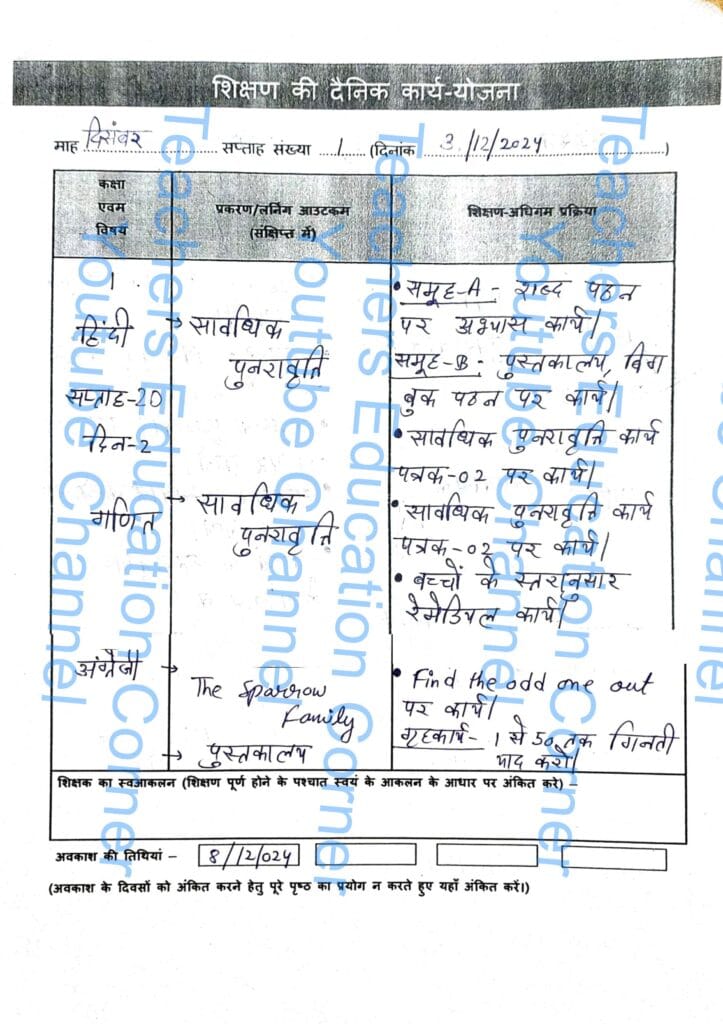 शिक्षण की दैनिक कार्य-योजना
माह दिसंबर सप्ताह संख्या 1 (दिनांक 3/12/2024)
कक्षा
एवम
विषय
प्रकरण/लर्निंग आउटकम
(संक्षिप्त में)
शिक्षण-अधिगम प्रक्रिया
1
हिंदी
सप्ताह-20
दिन-2
→ सावधिक
पुनरावृत्ति
• समूह-A - शब्द पठन
पर अभ्यास कार्य।
समूह-B - पुस्तकालय, बिग
बुक पठन पर कार्य।
• सावधिक पुनरावृत्ति कार्य
पत्रक-02 पर कार्य।
गणित
→ सावधिक
पुनरावृत्ति
• सावधिक पुनरावृत्ति कार्य
पत्रक-02 पर कार्य।
• बच्चों के स्तरानुसार
रेमेडियल कार्य।
अंग्रेजी →
The Sparrow
Family
→ पुस्तकालय
• Find the odd one out
पर कार्य।
गृहकार्य- 1 से 50 तक गिनती
याद करो।
शिक्षक का स्वआकलन (शिक्षण पूर्ण होने के पश्चात स्वयं के आकलन के आधार पर अंकित करे) –
अवकाश की तिथियां – 8/12/024
(अवकाश के दिवसों को अंकित करने हेतु पूरे पृष्ठ का प्रयोग न करते हुए यहाँ अंकित करें।)
Teachers Education Corner
Youtube Channel
Teachers Education Corner
Youtube Channel
Teachers Education Corner
Youtube Channel